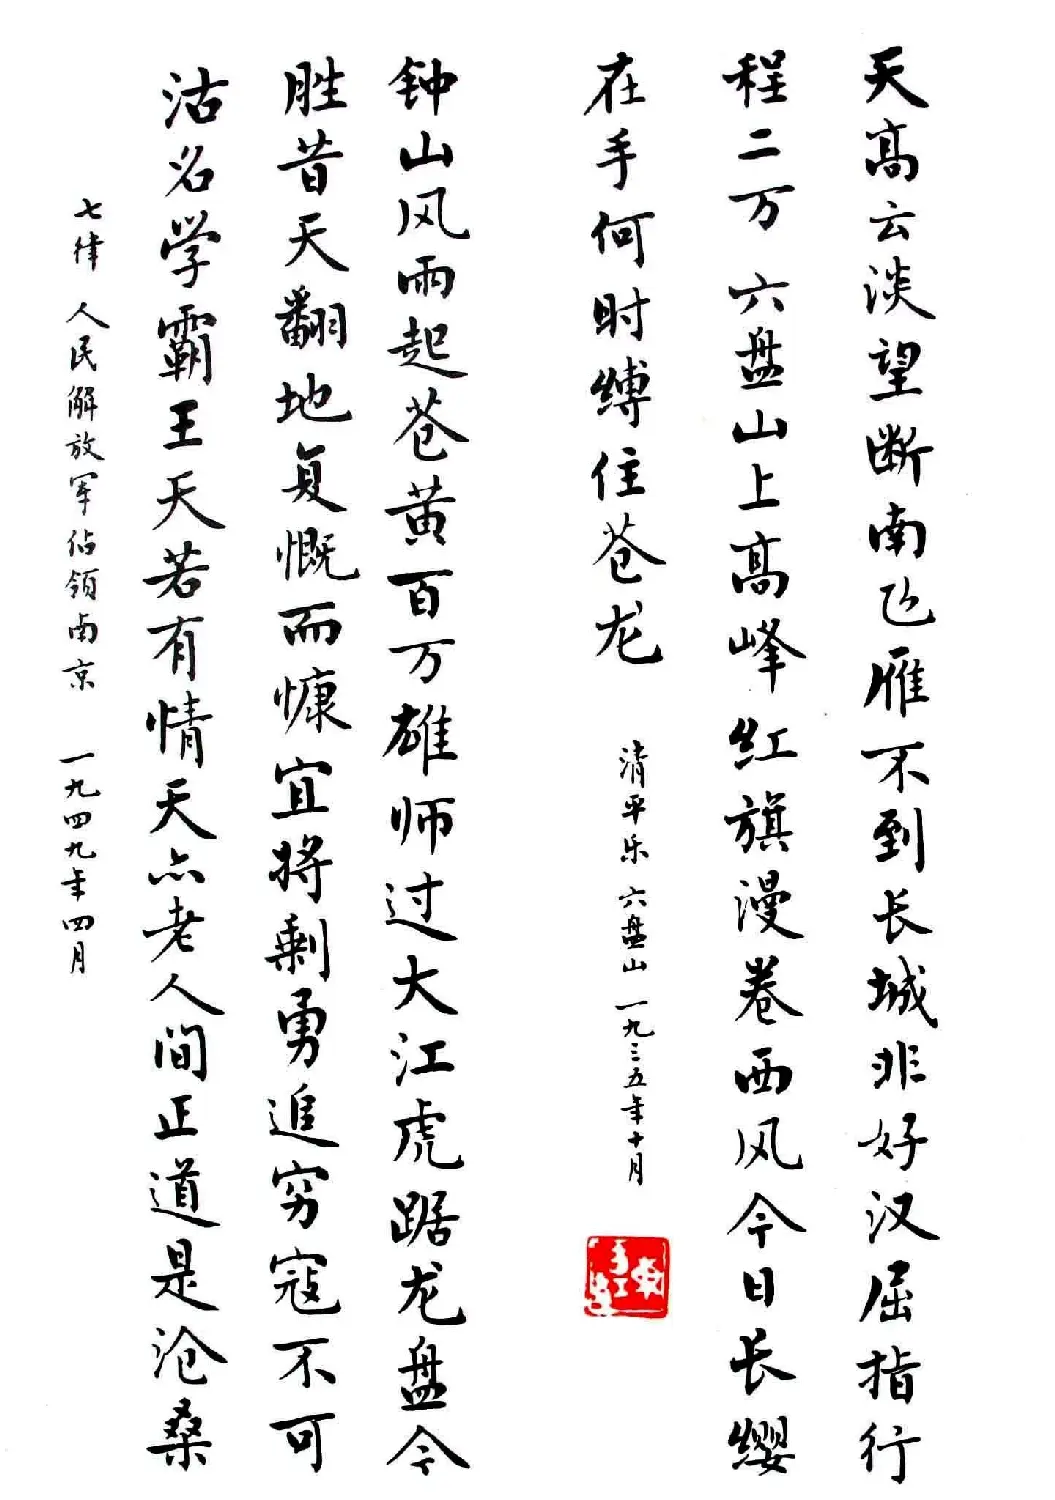 天高云淡望断南飞雁不到长城非好汉屈指行
程二万 六盘山上高峰红旗漫卷西风今日长缨
在手何时缚住苍龙
清平乐 六盘山 一九三五年十月
钟山风雨起苍黄百万雄师过大江虎踞龙盘今
胜昔天翻地复慨而慷宜将剩勇追穷寇不可
沽名学霸王天若有情天亦老人间正道是沧桑
七律 人民解放军占领南京 一九四九年四月